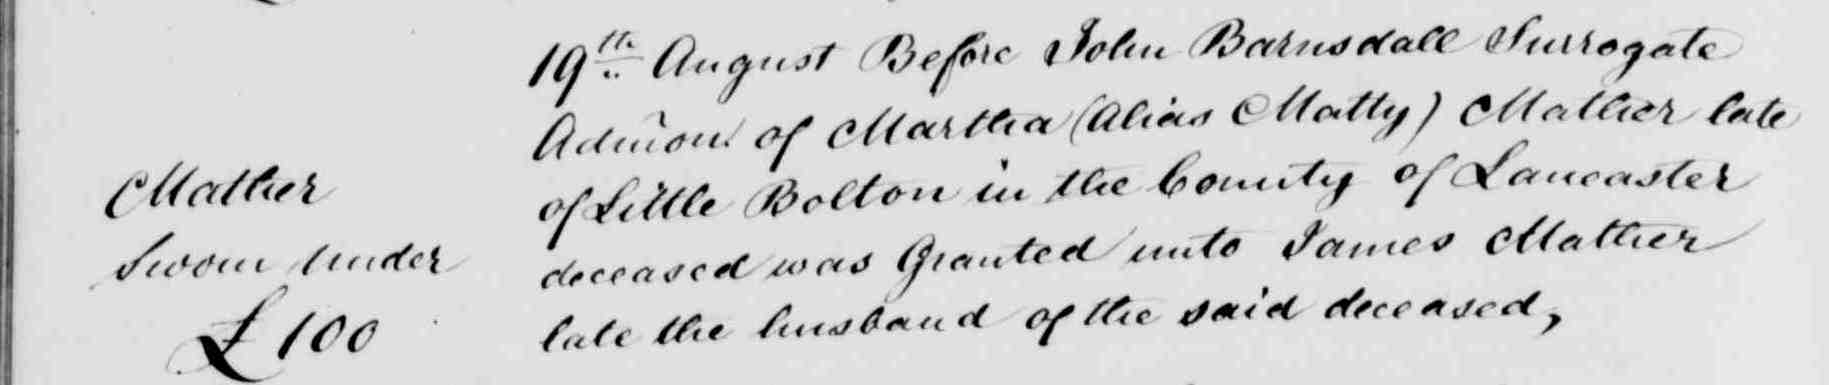 19th August Before John Barnsdall Surrogate
Admon: of Martha (Alias Matty) Mather late
of Little Bolton in the County of Lancaster
deceased was Granted unto James Mather
late the husband of the said deceased,
Mather
Sworn under
£100